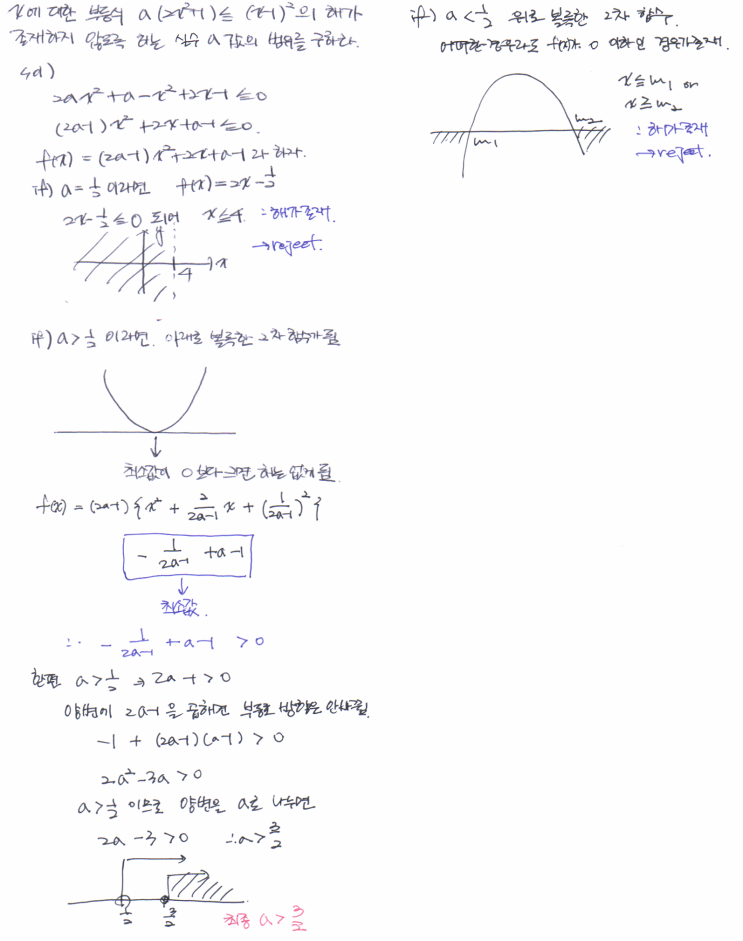 x에 대한 부등식 a(2x²+1) ≤ (x-1)²의 해가
존재하지 않도록 하는 실수 a값의 범위를 구하라.
sol)
2ax²+a-x²+2x-1≤0
(2a-1)x²+2x+a-1≤0.
f(x) = (2a-1)x²+2x+a-1 라 하자.
if) a=1/2 이라면 f(x)=2x-1/2
2x-1/2≤0 되어 x≤4 ∴해가존재.
→reject.
y
x
4
if) a>1/2 이라면. 아래로 볼록한 2차함수가 됨
최소값이 0보다크면 해는 없게됨.
f(x) = (2a-1){x² + 2/(2a-1) x + (1/(2a-1))²}
- 1/(2a-1) +a-1
최소값.
∴ - 1/(2a-1) +a-1 >0
한편 a>1/2 → 2a-1>0
양변에 2a-1을 곱해도 부등호 방향은 안바뀜.
-1 + (2a-1)(a-1) > 0
2a²-3a>0
a>1/2 이므로 양변을 a로 나누면
2a-3>0 ∴a>3/2
1/2 3/2
최종 a>3/2
if) a<1/2 위로 볼록한 2차함수.
어떠한경우라도 f(x)가 0 이하인 경우가존재.
m₁
m₂
x≤m₁ or
x≥m₂
∴해가존재
→reject.